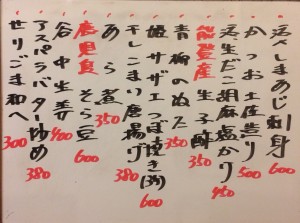 活〆しまあじ刺身 600
かつお土佐造り 500
活生だこ胡麻塩かり 450
能登産 生子酢 350
青柳のぬた 350
姫サザエつぼ焼き(3ヶ) 600
干しこまい唐揚げ 380
あら煮 350
鹿児島 そら豆 600
谷中生姜 400
アスパラバター炒め 380
せりごま和へ 300